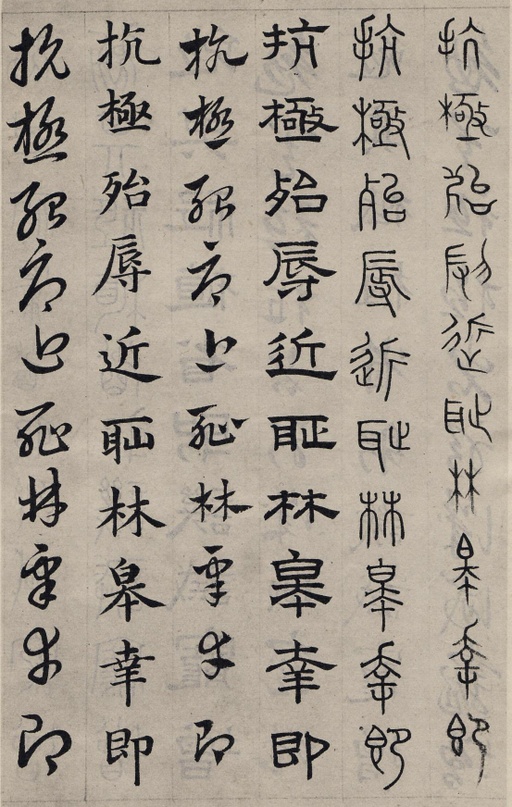 抗極殆辱近耻林皋幸即
抗極殆辱近耻林皋幸即
抗極殆辱近耻林皋幸即
抗極殆辱近耻林皋幸即
抗極殆辱近耻林皋幸即
抗極殆辱近耻林皋幸即